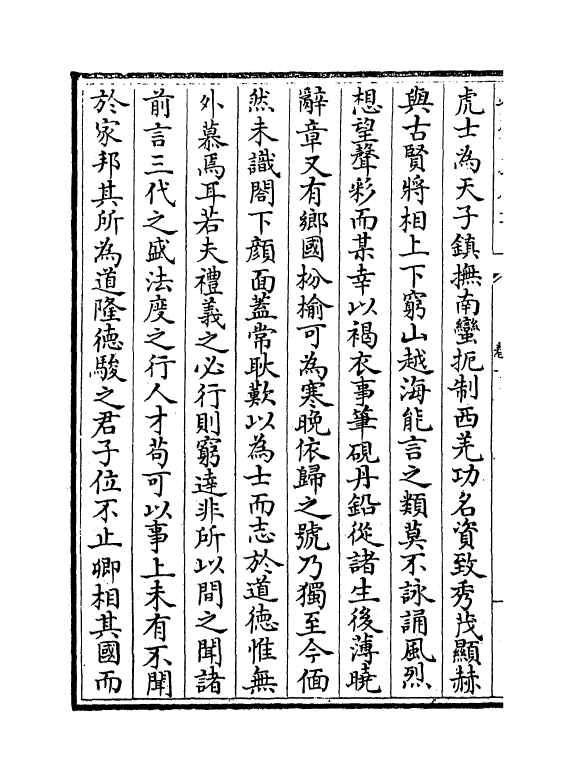 虎士為天子鎮撫南蠻扼制西羌功名資致秀茂顯赫
與古賢將相上下窮山越海能言之類莫不詠誦風烈
想望聲彩而某幸以褐衣事筆硯丹鉛從諸生後薄曉
辭章又有鄉國枌榆可為寒晚依歸之號乃獨至今偭
然未識閤下顔面蓋常耿歎以為士而志於道徳惟無
外慕焉耳若夫禮義之必行則窮達非所以間之聞諸
前言三代之盛法度之行人才苟可以事上未有不聞
於家邦其所為道隆徳駿之君子位不止卿相其國而